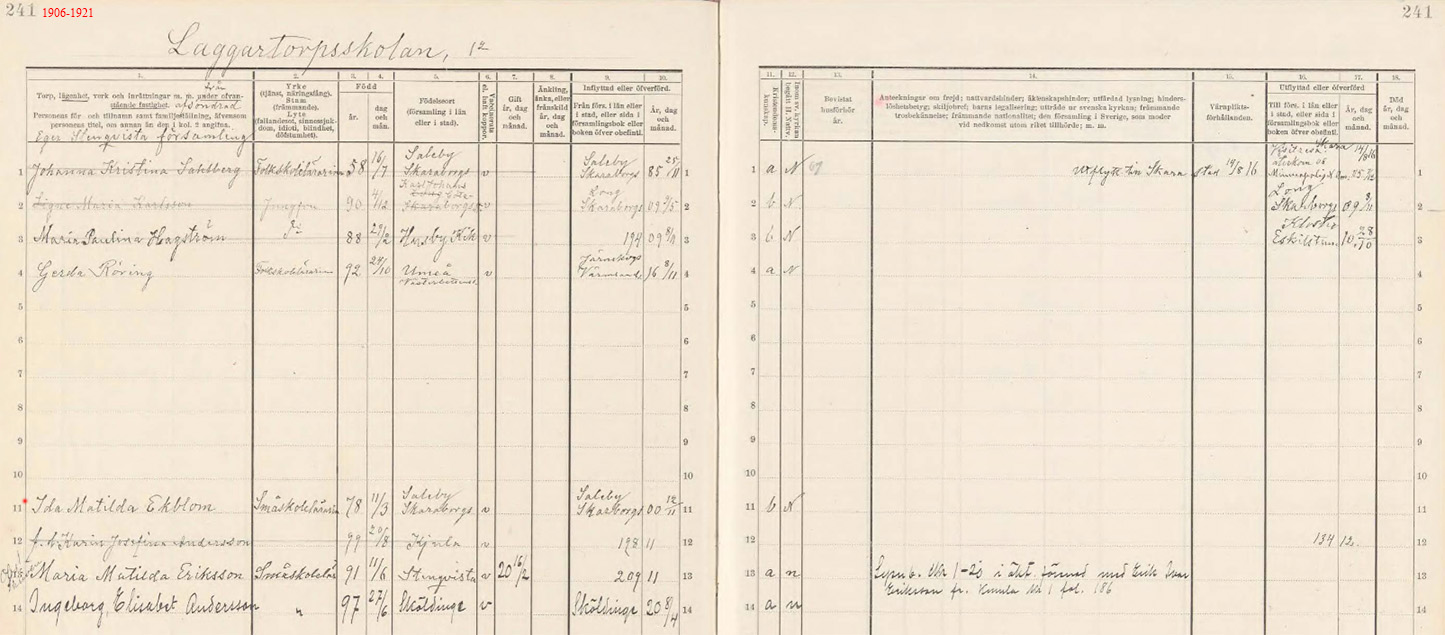 241 1906-1921
241
Laggartorpsskolan, 1a
1. 2. 3. 4. 5. 6. 7. 8. 9. 10.
11. 12. 13. 14. 15. 16. 17. 18.
Torp, lägenhet, verk och inrättningar m. m. under ofvan-
stående fastighet. afsöndrad från
Personens för- och tillnamn samt familjeställning, äfvensom
personens titel, om annan än den i kol. 2 angifna.
Eger Stenqvista församling
Yrke
(tjänst, näringsfång).
Stam
(främmande).
Lyte
(fallandesot, sinnessjuk-
dom, idioti, blindhet,
döfstumhet).
Född
år.
dag
och
mån.
Födelseort
(församling i län
eller i stad).
Vaccinerats
el. haft koppor.
Gift
år, dag
och
månad.
Änkling,
änka, eller
frånskild
år, dag
och
månad.
Inflyttad eller öfverförd.
Från förs. i län eller
i stad, eller sida i
församlingsbok eller
boken öfver obefintl.
År, dag
och
månad.
Kristendoms-
kunskap.
Bevistat
husförhör
år.
Anteckningar om frejd; nattvardshinder; äktenskapshinder; utfärdad lysning; hinders-
löshetsbetyg; skiljobref; barns legalisering; utträde ur svenska kyrkan; främmande
trosbekännelse; främmande nationalitet; den församling i Sverige, som moder
vid nedkomst utom riket tillhörde; m. m.
Värnplikts-
förhållanden.
Utflyttad eller öfverförd
Till förs. i län eller
i stad, eller sida i
församlingsbok eller
boken öfver obefintl.
År, dag
och
månad.
Död
år, dag
och
månad.
1 Johanna Kristina Sahlberg Folkskolelärarinna 58 16/7 Saleby Skaraborgs v Saleby Skaraborgs 85 25/11 1
1 a N 09 Utflytt till Skara stad 14/8 16 Skara 14/8 16 1
2 Signe Maria Karlsson Jungfru 90 4/12 v Long Skaraborgs 09 2/5 2
2 b N Long Skaraborgs 09 9/11 2
3 Maria Paulina Hagström do 88 29/2 Husby v 194 09 8/11 3
3 b N Klosters Eskilstuna 10 28/10 3
4 Gerda Röring Folkskolelärarinna 92 24/10 Umeå Västerbottens v Värmlands 16 8/11 4
4 a N 4
5 5 5 5
6 6 6 6
7 7 7 7
8 8 8 8
9 9 9 9
10 10 10 10
11 Ida Matilda Ekblom Småskolelärarinna 78 11/3 Saleby Skaraborgs v Saleby Skaraborgs 00 12/11 11
11 b N 11
12 f. d. Karin Josefina Andersson 99 20/8 Kjula v 198 11 12
12 134 12. 12
13 Maria Matilda Eriksson Småskolelär 91 11/6 Stenqvista v 20 16/2 209 11 13
13 a n 1-20 i äkt. förened med Erik Ivar
Eriksson fr. Kjula 1 fol. 186 13
14 Ingeborg Elisabet Andersson " 97 27/6 Sköldinge v Sköldinge 20 8/4 14
14 a n 14